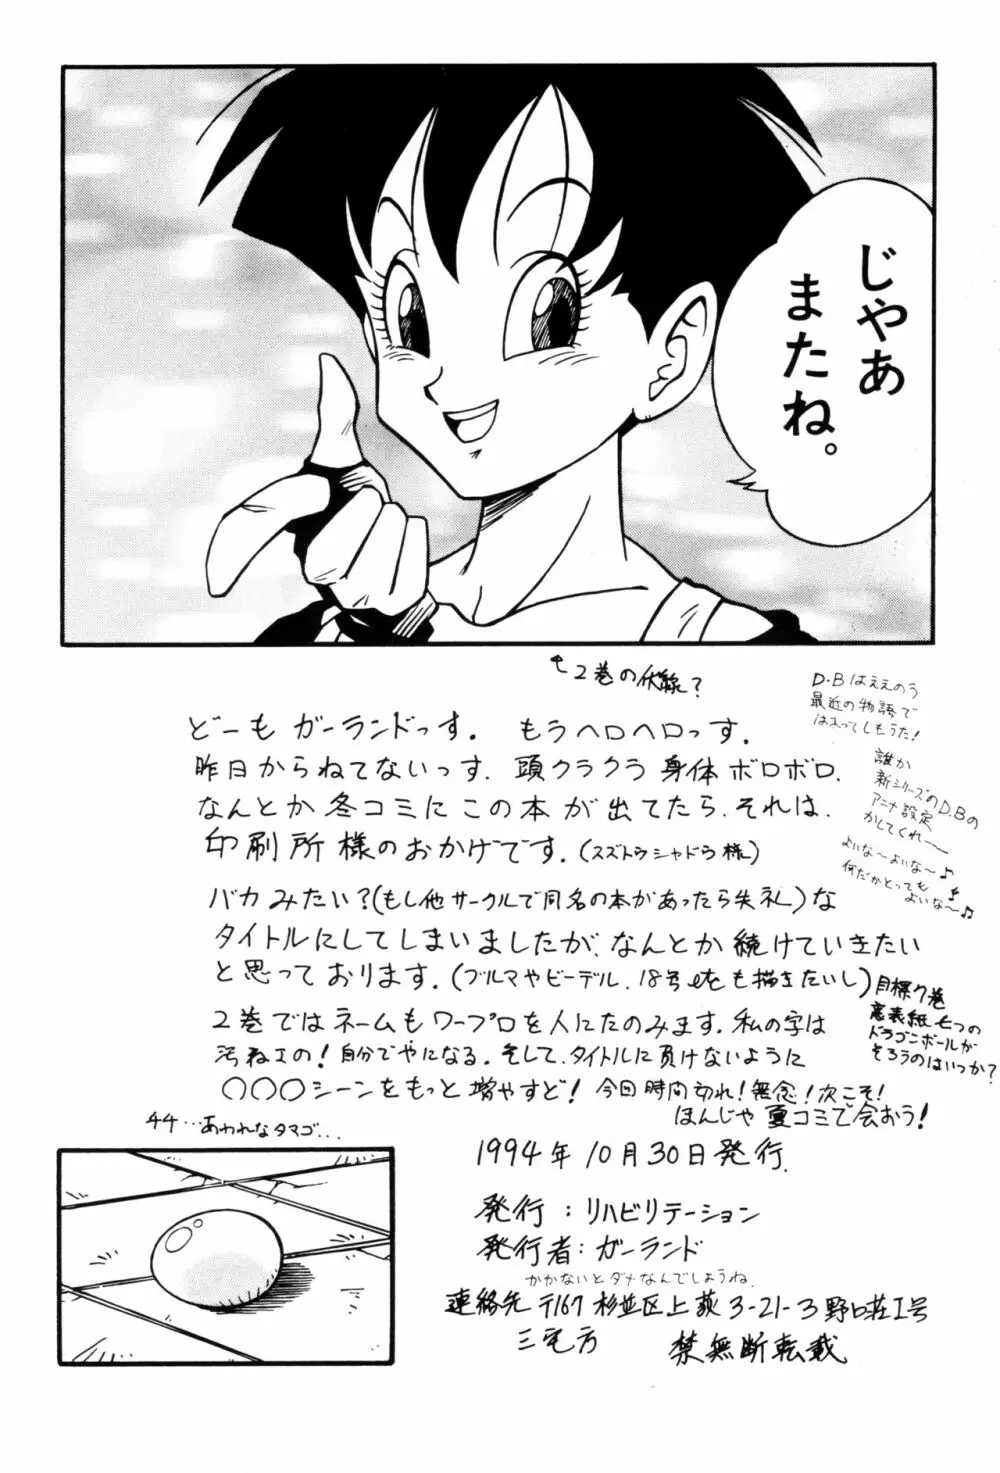 じゃあ
またね。
↑2巻の伏線?
どーも ガーランドっす。 もうヘロヘロっす。
昨日からねてないっす。頭クラクラ 身体ボロボロ。
なんとか 冬コミに この本が 出てたら、それは、
印刷所様のおかげです。(スズトウシャドウ様)
バカみたい?(もし他サークルで同名の本があったら失礼)な
タイトルにしてしまいましたが、なんとか 続けていきたい
と思っております。(ブルマやビーデル、18号etcも描きたいし)
2巻ではネームもワープロを人にたのみます。私の字は
汚ねェの!自分でやになる。そして、タイトルに負けないように
〇〇〇シーンをもっと増やすど! 今回時間切れ!無念!次こそ!
ほんじゃ 夏コミで会おう!
D.Bはええのう
最近の物語で
はまってしもうた!
誰か
新シリーズのD.Bの
アニメ設定
かしてくれー
よいな〜よいな〜♪
何だかとっても
よいな〜♫
目標7巻
裏表紙七つの
ドラゴンボールが
そろうのはいつか?
44…あわれなタマゴ...
1994年10月30日発行.
発行:リハビリテーション
発行者:ガーランド
かかないとダメなんでしょうね.
連絡先 〒167 杉並区上荻3-21-3野口荘1号
三宅方 禁無断転載